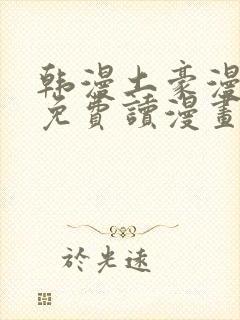 韩漫土豪漫
免費讀漫畫
於光遠